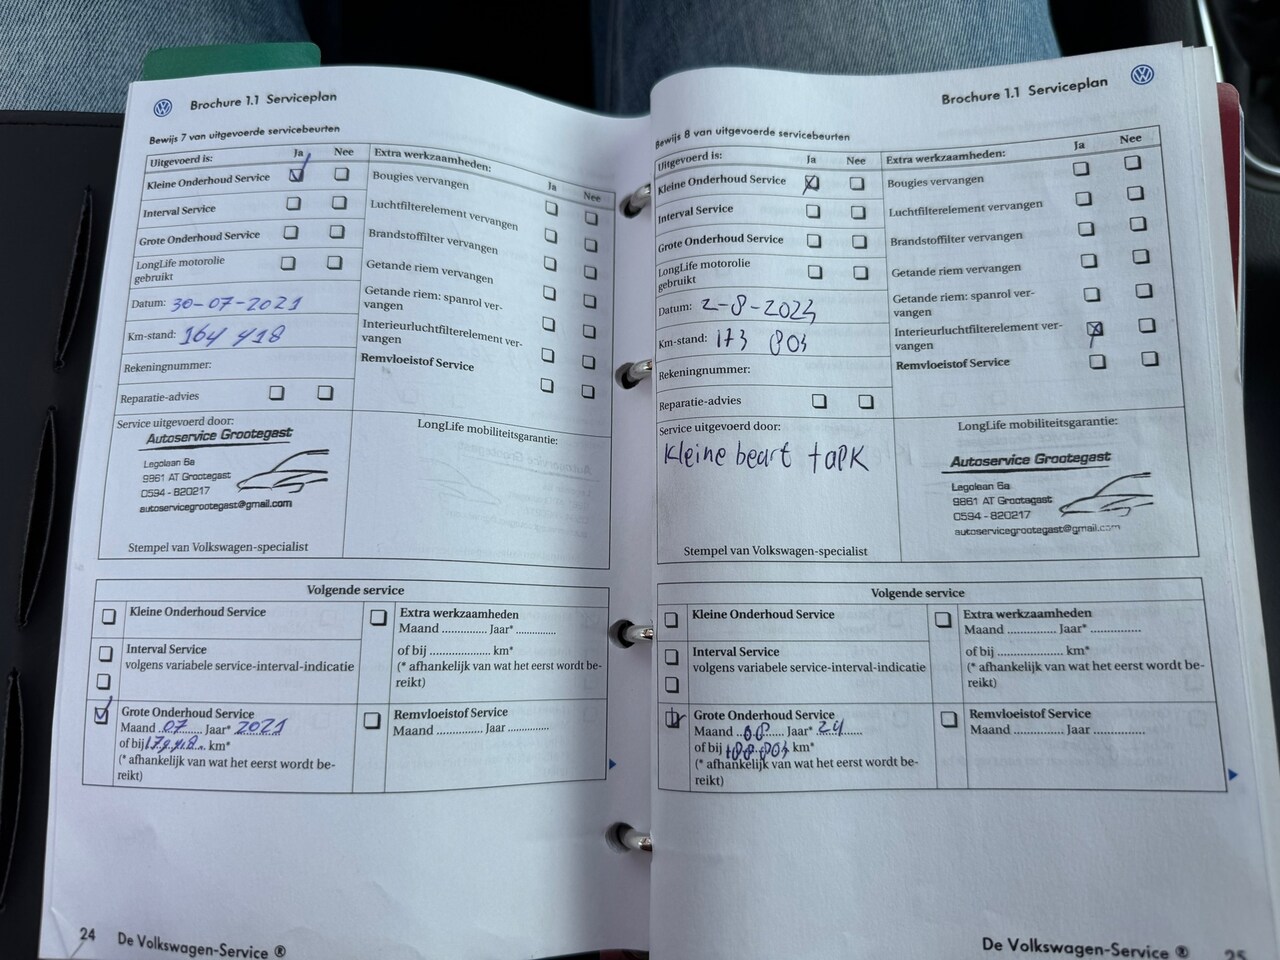 Brochure 1.1 Serviceplan
Bewijs 7 van uitgevoerde servicebeurten
Uitgevoerd is: Ja Nee
Kleine Onderhoud Service
Interval Service
Grote Onderhoud Service
LongLife motorolie
gebruikt
Datum: 30-07-2021
Km-stand: 164 418
Rekeningnummer:
Reparatie-advies
Extra werkzaamheden:
Ja Nee
Bougies vervangen
Luchtfilterelement vervangen
Brandstoffilter vervangen
Getande riem vervangen
Getande riem: spanrol ver-
vangen
Interieurluchtfilterelement ver-
vangen
Remvloeistof Service
Service uitgevoerd door:
Autoservice Grootegast
Legolaan 8a
9861 AT Grootegast
0594 - 820217
autoservicegrootegast@gmail.com
Stempel van Volkswagen-specialist
LongLife mobiliteitsgarantie:
Volgende service
Kleine Onderhoud Service
Interval Service
volgens variabele service-interval-indicatie
Grote Onderhoud Service
Maand 07 Jaar* 2021
of bij km*
(* afhankelijk van wat het eerst wordt be-
reikt)
Extra werkzaamheden
Maand ............... Jaar* .............
of bij .................... km*
(* afhankelijk van wat het eerst wordt be-
reikt)
Remvloeistof Service
Maand ............... Jaar .............
24 De Volkswagen-Service ®
Brochure 1.1 Serviceplan
Bewijs 8 van uitgevoerde servicebeurten
Uitgevoerd is: Ja Nee
Kleine Onderhoud Service
Interval Service
Grote Onderhoud Service
LongLife motorolie
gebruikt
Datum: 2-8-2023
Km-stand: 173 803
Rekeningnummer:
Reparatie-advies
Extra werkzaamheden: Ja Nee
Bougies vervangen
Luchtfilterelement vervangen
Brandstoffilter vervangen
Getande riem vervangen
Getande riem: spanrol ver-
vangen
Interieurluchtfilterelement ver-
vangen
Remvloeistof Service
Service uitgevoerd door:
Kleine beart +aPK
Stempel van Volkswagen-specialist
LongLife mobiliteitsgarantie:
Autoservice Grootegast
Legolaan 8a
9861 AT Grootegast
0594 - 820217
autoservicegrootegast@gmail.com
Volgende service
Kleine Onderhoud Service
Interval Service
volgens variabele service-interval-indicatie
Grote Onderhoud Service
Maand 08 Jaar* 24
of bij 188.803 km*
(* afhankelijk van wat het eerst wordt be-
reikt)
Extra werkzaamheden
Maand ............... Jaar* .............
of bij .................... km*
(* afhankelijk van wat het eerst wordt be-
reikt)
Remvloeistof Service
Maand ............... Jaar .............
De Volkswagen-Service ® 25